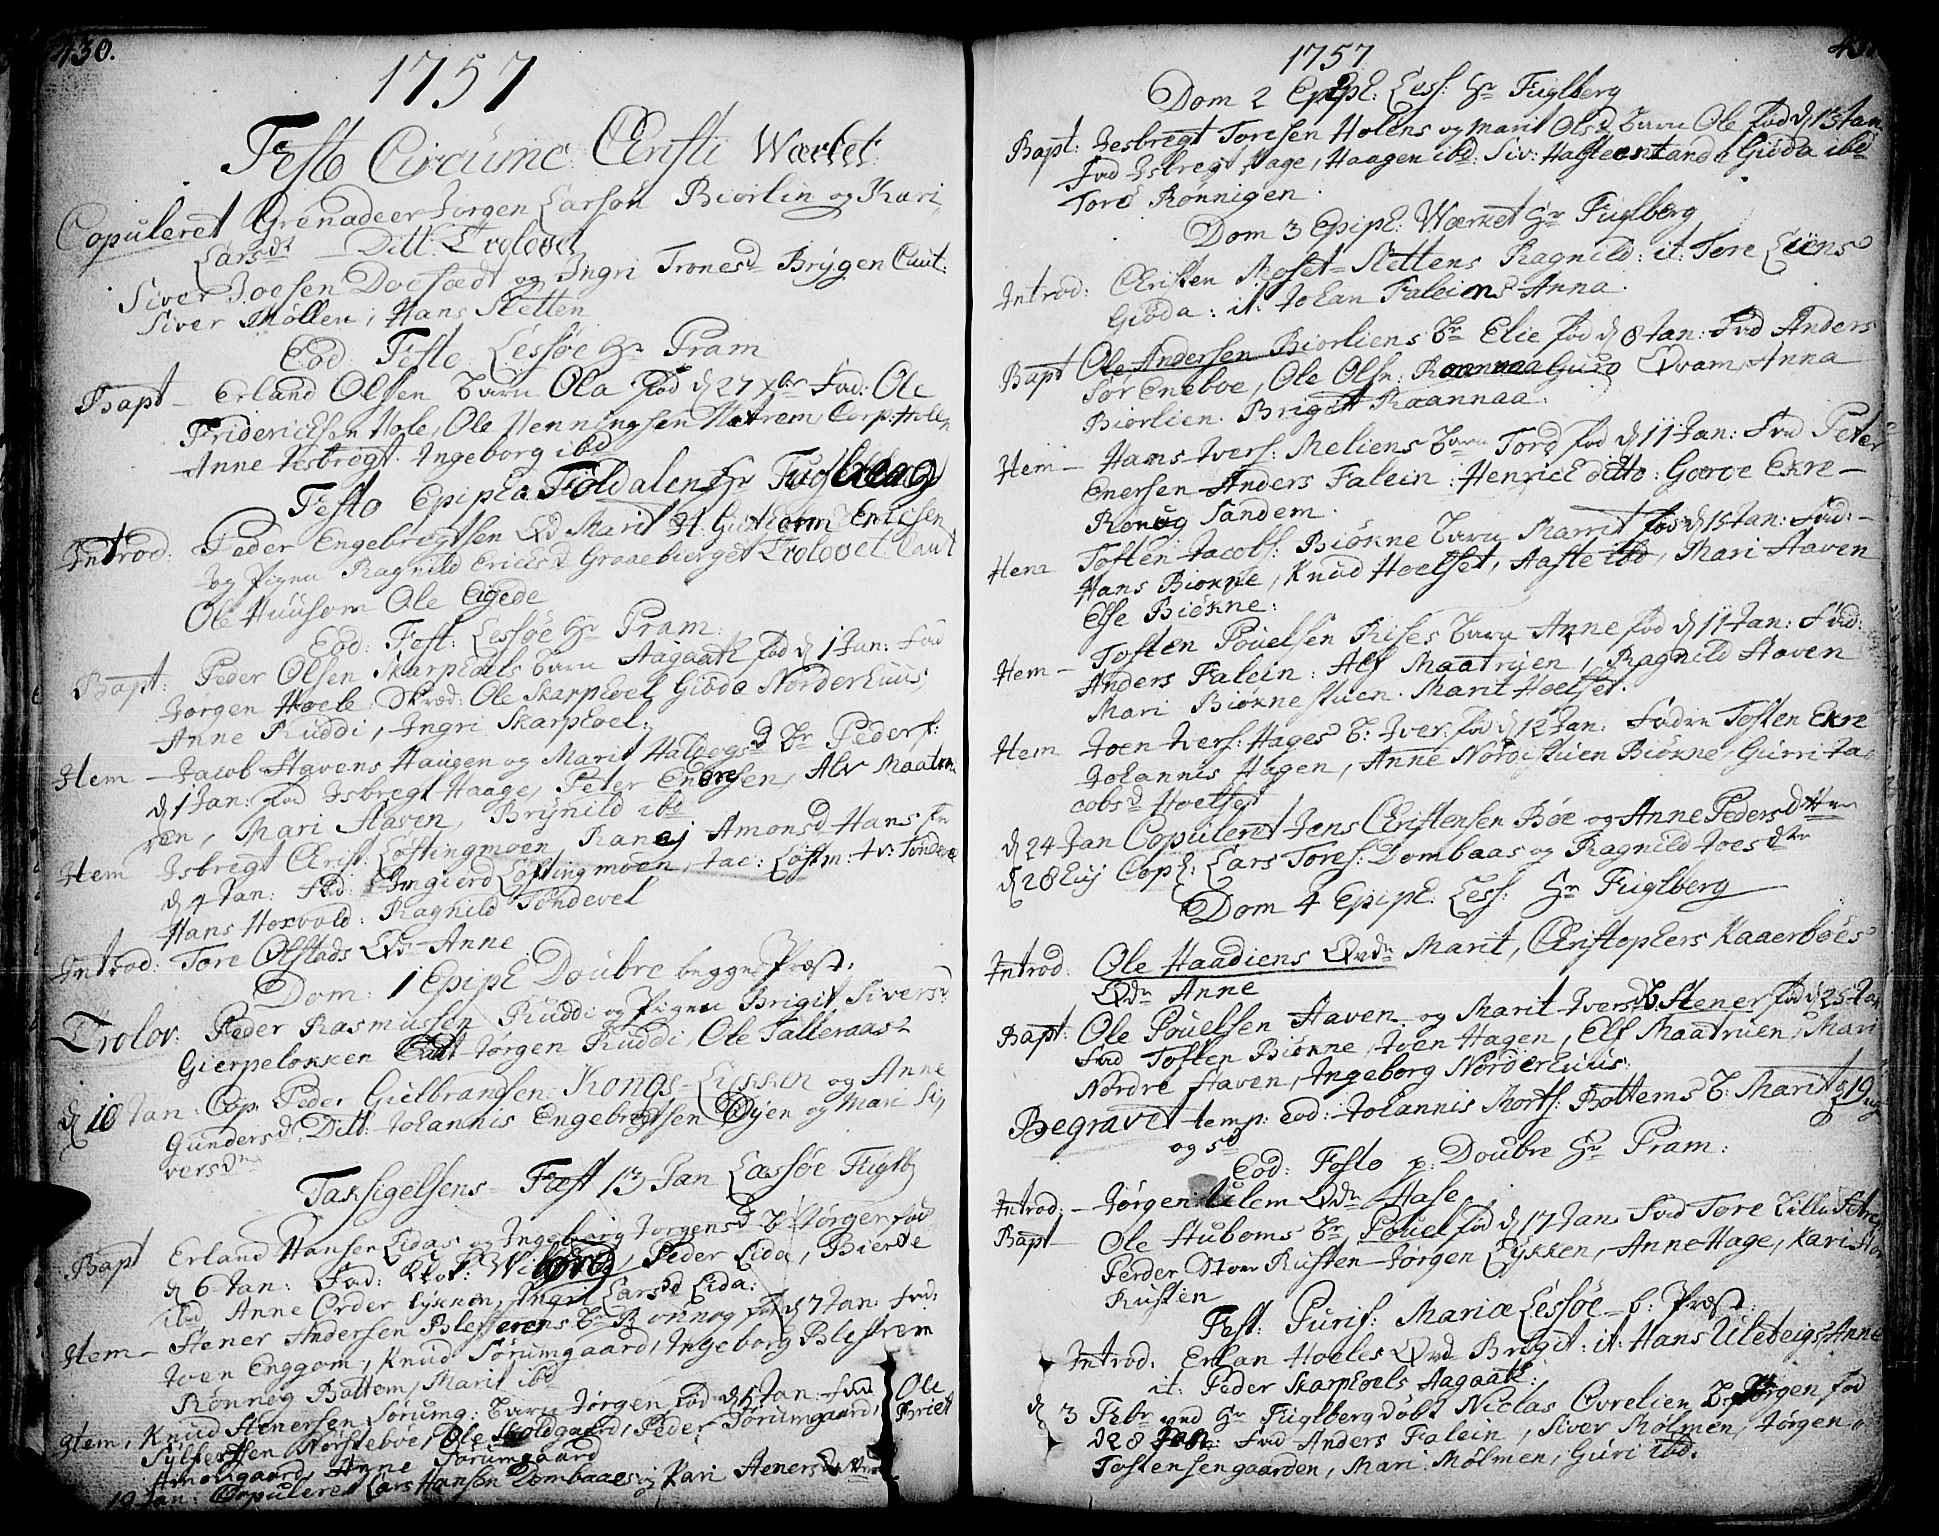 430.
1757
Festo Circumc: Christi Wærket
Copuleret Grenadeer Jorgen Larsön Biorlin og Kari
Larsdt Ditt: Trolovet
Siver Joesen Doesædt og Ingri Tronesd Brygen Caut:
Siver Möllen, Hans Stetten
Eod: Festo Lessöe Hr Pram
Bapt - Erland Olsen barn Ola föd d 27 xbr Fad: Ole
Fridericksen Hole, Ole Henningsen Natrem, Corp: Hole
Anne Isbregt. Ingeborg ibd
Festo Epipha Foldalen Hr Fuglberg
Introd: Peder Engebregtsen Qd Marit
og Pigen Ragnild Ericksd Graaebierget Trolovet Caut
Ole Huusom Ole Eigede
Eod: Fest: Lessöe Hr Pram
Bapt: Peder Olsen Skarphoels barn Aagaath föd d 1 Jan: Fad
Jorgen Hoele Skræd: Ole Skarphoel Giöda Norderhuus,
Anne Ruddi, Ingri Skarphoel:
Item - Jacob Stavens Haugen og Marit Haldogsd br Peder f:
d 1 Jan: Fad Isbregt Haage, Peter Enersen, Alv Maatru
en, Mari Staven, Brynild ibd
Item Isbregt Christ: Löftingmoen Ranej Amonsd Hans
d 4 Jan: Fad: Ingierd Löftingmoen, Jac: Löftm: Tv: Töndevel
Hans Horvold: Ragnild Töndevel
Introd: Tore Olstads Qd Anne
Dom: 1 Epiph Doubre begge Præst:
Trolov: Peder Rasmussen Ruddi og Pigen Brigit Siversd
Gierpelökken Caut Jörgen Ruddi, Ole Talleraas
d 10 Jan: Cop: Peder Gielbransen Kongs-Lykken og Anne
Gundersd: Ditt: Johannis Engebretsen Öyen og Mari Si,
versdr
Taksigelsens-Fæst 13 Jan Læssöe Fuglb
Bapt Erland Hansen Lidas og Ingeborg Jorgensd b: Jörgen föd
d 6 Jan: Fad: Peder Lida, Bierte
ibd Anne Order lykken, Ingri Larsd Lida:
Item - Stener Andersen br Ronnog föd d 7 Jan: Fad:
Joen Enggom, Knud Sörumgaard, Ingeborg Blestrem
Rönnog Bottem, Marit ibd
Item, Knud Stenersen Sörumg: barn Jörgen föd d Jan: Fad Ole
Syltesten Norsteboe, Ole Skoldgaard, Peder Sörumgaard, Briet
Amodtgaard, Anne Sörumgaard
19 Jan: Copuleret Lars Hansen Dombaaes og Kari Steners Datter
1757
Dom 2 Epiph: Less: Hr Fuglberg
Bapt: Isbregt Toresen Holens og Marit Olsd barn Ole föd d 13 Jan
Fad Isbregt Hage, Haagen ibd: Siv: Giöda ibd
Tore Rönnigen.
Dom 3 Epiph: Wærket Hr Fuglberg
Introd: Christen Moset-Stettens Ragnild: it: Tore Liens
Gioda: it: Johan Faleins Anna.
Bapt Ole Andersen Biorliens br Elie föd d 8 Jan: Fad Anders
Sör Eneboe, Ole Olsn: Qvam, Anna
Biorlien. Brigit Raannaa.
Item - Hans Ivers: Meliens barn Tord föd d 11 Jan: Fad Peter
Enersen Anders Falein: Henrich ditto: Goroe Ekre-
Ronog Sandem.
Item Tosten Jacobs: Biökne barn Marrit föd d 15 Jan: Fad:-
Hans Biökne, Knud Hoelset, Aaste ibd, Mari Staven
Else Biökne:
Item - Tosten Povelsen Rises barn Anne föd d 11 Jan: Fad:
Anders Falein: Alf Maatruen, Ragnild Staven
Mari Biöknestuen. Marit Hoelset.
Item Joen Ivers: Hages b: Iver: föd d 12 Jan: Fadre Tosten Ekre
Johannis Hagen, Anne Nordstuen Biökne, Gurri Ja-
cobsd Hoelset
d 24 Jan Copuleret Jens Christensen Böe og Anne Pedersdttr
d 28 Cop: Lars Tores: Dombaas og Ragnild Joesdtr
Dom 4 Epiph: Less: Hr Fuglberg
Introd: Ole Haadiens Qvd Marit, Christophers Kaaerböes
Qvd Anne
Bapt: Ole Povelsen Staven og Marit Iversd b: Stener föd d 25 Jan
Fad Tosten Biökne, Joen Hagen, Elf Maatruen, Mari
Nordre Staven, Ingeborg Norderhuus.
Begravet temp: eod: Johannis Morts: Bottems b: Marit 19 ug
og 5 d
Eod: Festo p: Doubre Hr Pram:
Introd: - Jörgen Ulem Qvd Hase.
Bapt - Ole Stuboms br Povel föd d 17 Jan Fad Tore Lille
Perder Stor Rusten Jörgen Lykken, Anne Hage, Kari Stor
Rusten
Fest: Purif: Mariæ Lessöe - b: Præst:
Introd: Erlan Hoeles Qvd Brigit: it: Hans Uleteigs Anne
it: Peder Skarphoels Aagaath:
d 3 Febr ved Hr Fuglberg döbt Niclas Ovrelien b: Jörgen föd
d 28 Jan: Fad Anders Falein, Siver Mölmen, Jörgen
Tostensengaarden, Mari Mölmen, Guri ibd.